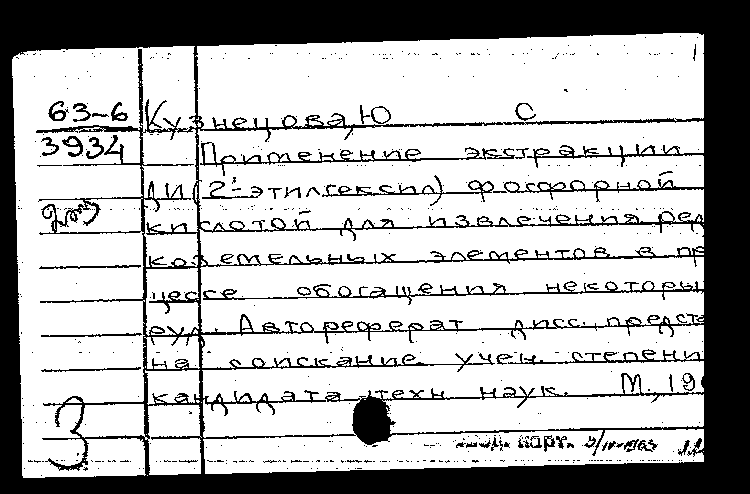 63-6
3934
Кузнецова, Ю С
Применение экстракции
ди(2'-этилгексил) фосфорной
кислотой для извлечения ред
коземельных элементов в пр
цессе обогащения некоторы
руд. Автореферат дисс., предста
на соискание учен. степени
кандидата техн наук. М., 19
3
карт. 3/IV-1963